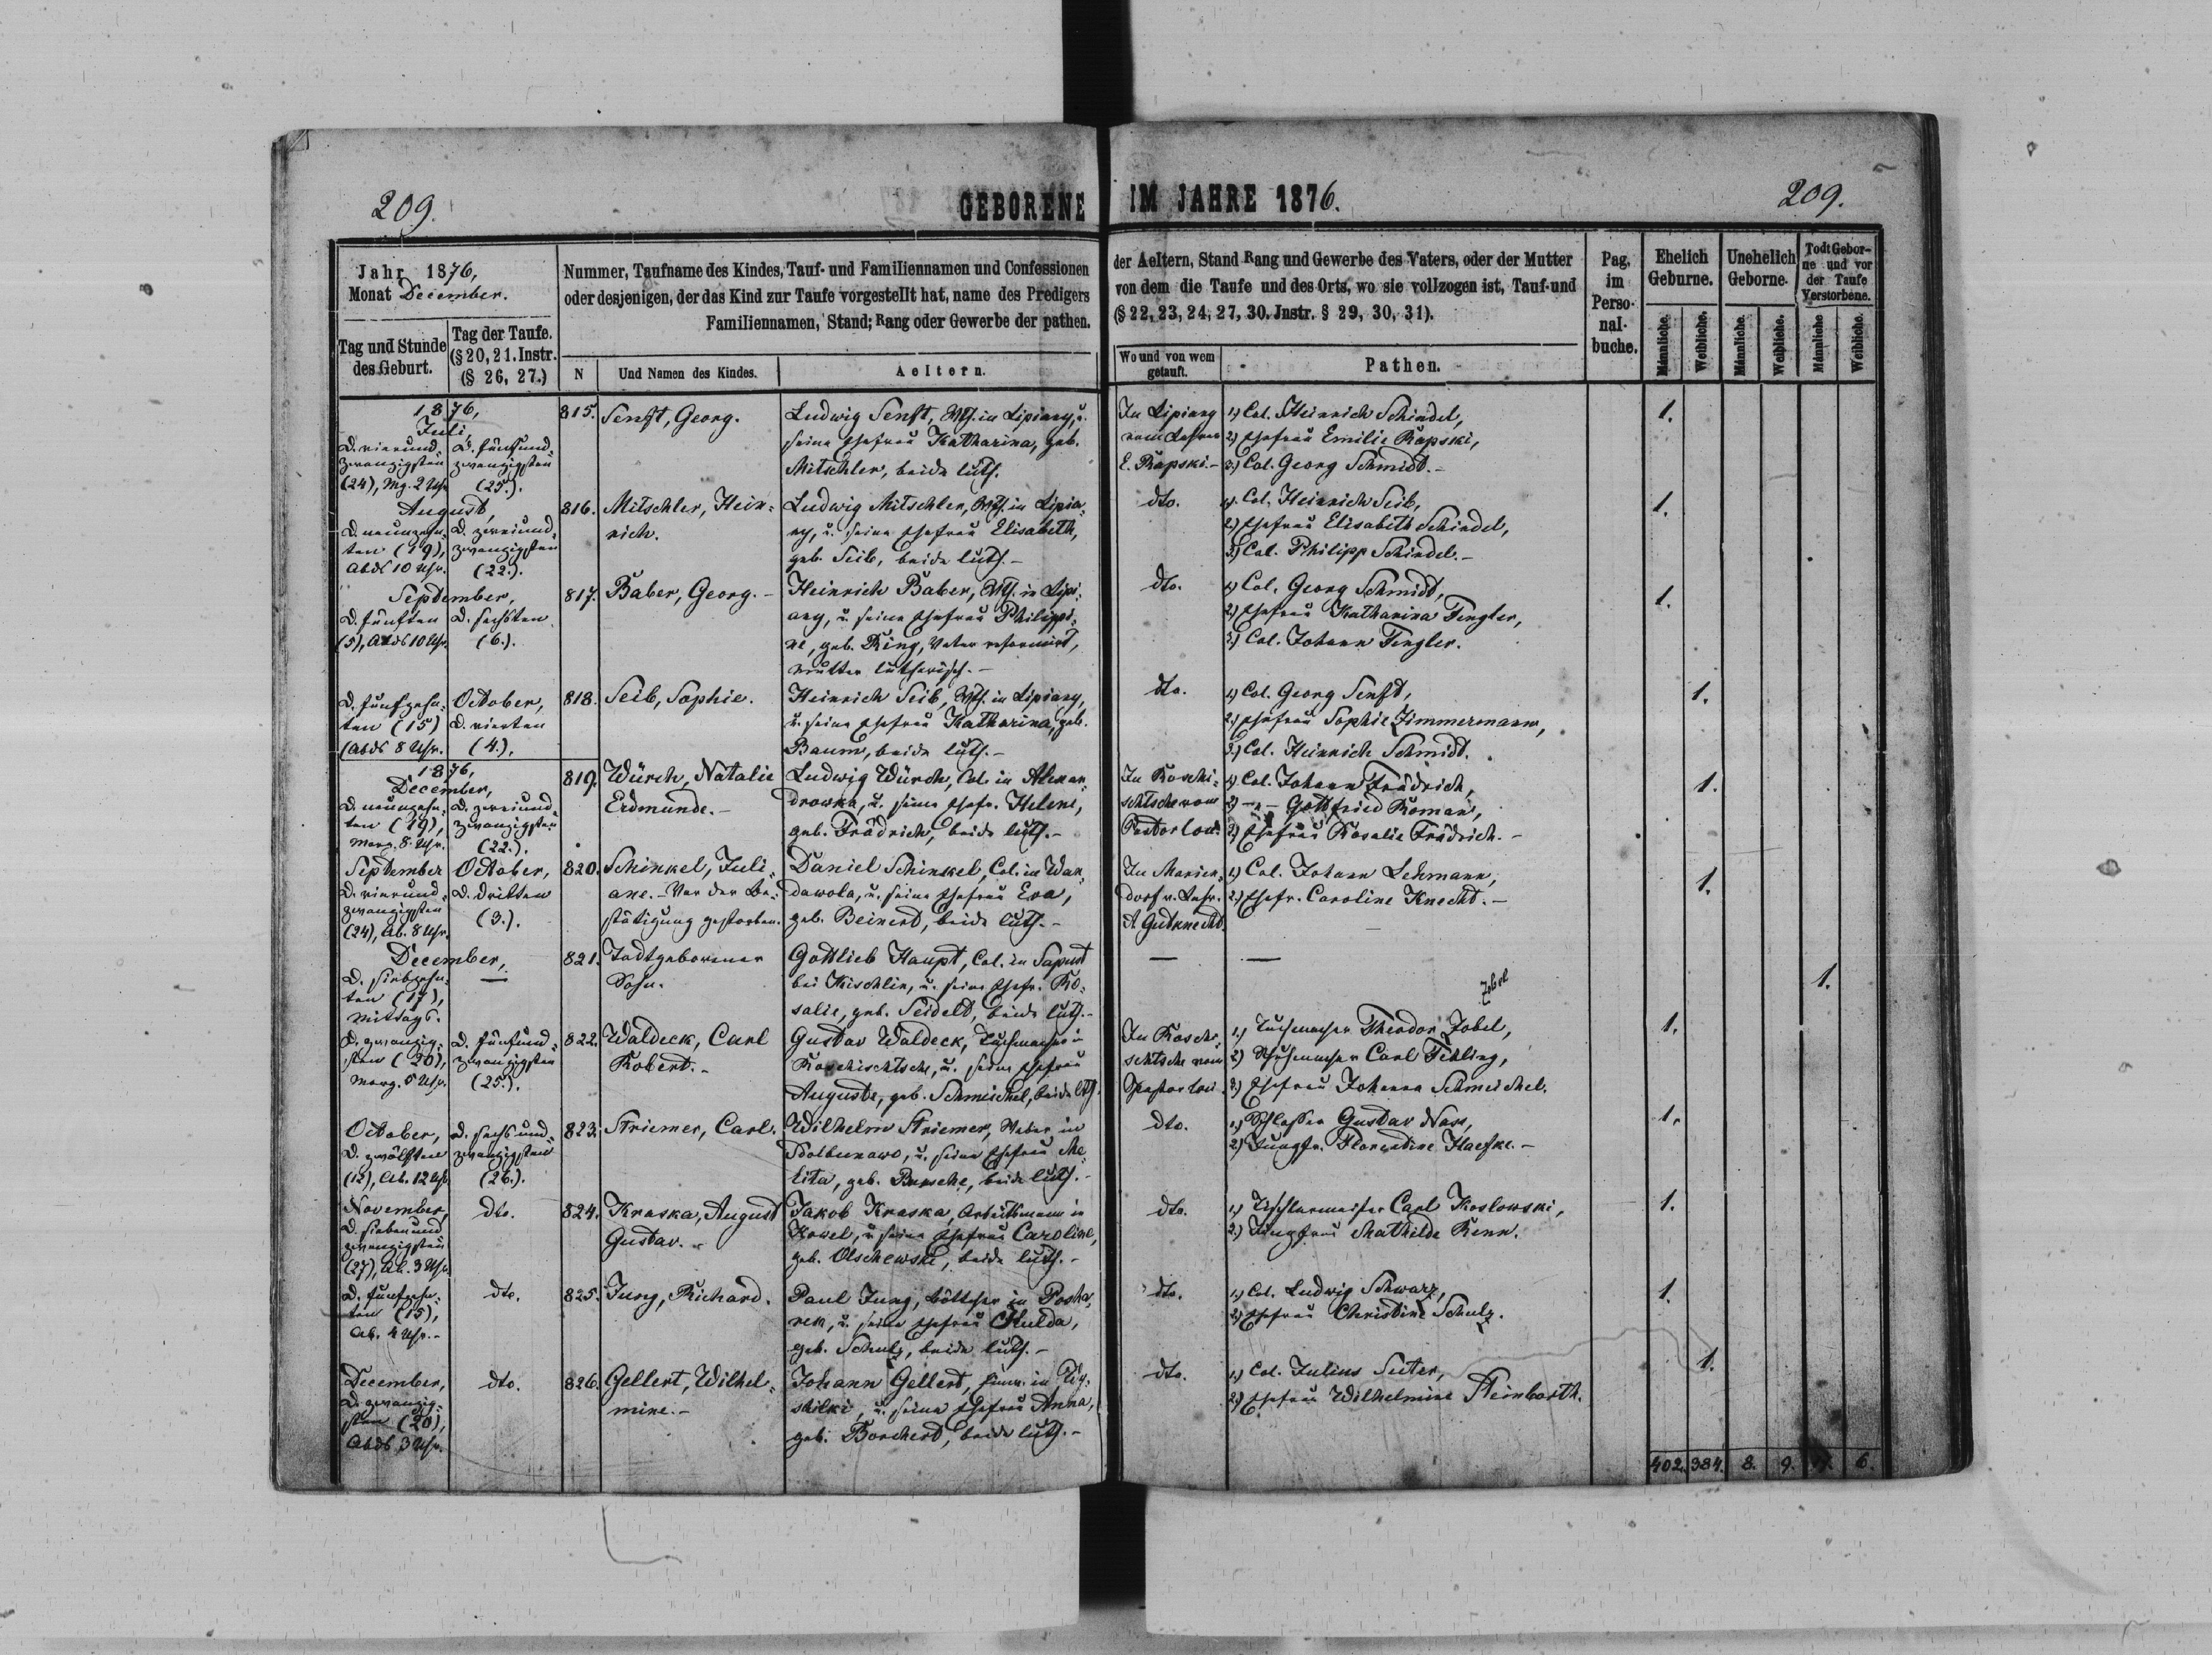 209.
GEBORENE IM JAHRE 1876.
209.
Jahr 1876,
Monat December.
Tag und Stunde
des Geburt.
Tag der Taufe.
(§ 20, 21. Instr.
(§ 26, 27.)
Nummer, Taufname des Kindes, Tauf- und Familiennamen und Confessionen
oder desjenigen, der das Kind zur Taufe vorgestellt hat, name des Predigers
Familiennamen, Stand; Rang oder Gewerbe der pathen.
N
Und Namen des Kindes.
Aeltern.
der Aeltern, Stand Rang und Gewerbe des Vaters, oder der Mutter
von dem die Taufe und des Orts, wo sie vollzogen ist, Tauf-und
(§ 22, 23, 24, 27, 30. Jnstr. § 29, 30, 31).
Wo und von wem
getauft.
Pathen.
Pag.
im
Perso-
nal-
buche.
Ehelich
Geburne.
Unehelich
Geborne.
Todt Gebor-
ne und vor
der Taufe
Verstorbene.
Männliche.
Weibliche.
Männliche.
Weibliche.
Männliche
Weibliche.
1876,
Juli,
D. vierund-
zwanzigsten
(24), Mg. 2 Uhr
D. fünfund-
zwanzigsten
(25.).
815.
Senft, Georg.
Ludwig Senft, in Lipiany, u.
seine Ehefrau Katharina, geb.
Mitschler, beide luth.
In Lipiany
vom Lehrer
E. Rapski.-
1.) Col. Heinrich Schindel,
2.) Ehefrau Emilie Rapski,
3.) Col. Georg Schmidt.-
1.
August,
D. neunzehn-
ten (19),
Abds 10 Uhr.
D. zweiund-
zwanzigsten
(22.).
816.
Mitschler, Hein-
rich.
Ludwig Mitschler, in Lipia-
ny, u. seine Ehefrau Elisabeth,
geb. Seib, beide luth.-
dto.
1.) Col. Heinrich Seib,
2.) Ehefrau Elisabeth Schindel,
3.) Col. Philipp Schindel.-
1.
September,
D. fünften
(5), Abds 10 Uhr.
D. sechsten
(6.).
817.
Baber, Georg.-
Heinrich Baber, in Lipi-
any, u. seine Ehefrau Philippi-
ne, geb. Ring, Vater reformirt,
Mutter lutherisch.-
dto.
1.) Col. Georg Schmidt,
2.) Ehefrau Katharina Fengler,
3.) Col. Johann Fengler.
1.
D. fünfzehn-
ten (15)
(Abds 8 Uhr.
October,
D. vierten
(4.).
818.
Seib, Sophie.
Heinrich Seib, in Lipiany,
u. seine Ehefrau Katharina, geb.
Baum, beide luth.-
dto.
1.) Col. Georg Senft,
2.) Ehefrau Sophie Zimmermann,
3.) Col. Heinrich Schmidt.
1.
1876,
December,
D. neunzehn-
ten (19),
Morg. 8 Uhr.
D. zweiund-
zwanzigsten
(22.).
819.
Würch, Natalie
Erdmunde.-
Ludwig Würch, Col. in Alexan-
drowka, u. seine Ehefr. Helene,
geb. Frädrich, beide luth.-
In Roschi-
schtsche vom
Pastor
1.) Col. Johann Frädrich,
2.) -"- Gottfried Roman,
3.) Ehefrau Rosalie Frädrich.-
1.
September
D. vierund-
zwanzigsten
(24), Ab. 8 Uhr.
October,
D. dritten
(3.).
820.
Schinkel, Juli-
ane.- Vor der Be-
stätigung gestorben.
Daniel Schinkel, Col. in Wan-
dawola, u. seine Ehefrau Eva,
geb. Beinert, beide luth.-
In Marien-
dorf v. Lehr.
A. Gutknecht.
1.) Col. Johann Lehmann,
2.) Ehefr. Caroline Knecht.-
1.
December,
D. siebzehn-
ten (17),
Mittags.
—
821.
Todtgeborener
Sohn.
Gottlieb Haupt, Col. in Sapust
bei Kischlin, u. seine Ehefr. Ro-
salie, geb. Seidelt, beide luth.-
—
—
1.
Zobel
D. zwanzig-
sten (20),
Morg. 5 Uhr.
D. fünfund-
zwanzigsten
(25.).
822.
Waldeck, Carl
Robert.-
Gustav Waldeck, Tuchmacher in
Roschischtsche, u. seine Ehefrau
Auguste, geb. Schmischel, beide luth.
In Roschi-
schtsche vom
Pastor
1.) Tuchmacher Theodor Zobel,
2.) Schuhmacher Carl Fehling,
3.) Ehefrau Johanna Schmeichel.
1.
October,
D. zwölften
(12), Ab. 12 Uhr
D. sechsund-
zwanzigsten
(26.).
823.
Striemer, Carl.
Wilhelm Striemer, Weber in
Sdolbunowo, u. seine Ehefrau Me-
lita, geb. Bursche, beide luth.-
dto.
1.) Schlosser Gustav Nass,
2.) Jungfr. Florentine Haefke.-
1.
November,
D. siebenund-
zwanzigsten
(27), Ab. 3 Uhr
dto.
824.
Kraska, August
Gustav.-
Jakob Kraska, Arbeitsmann in
Kowel, u. seine Ehefrau Caroline,
geb. Olschewski, beide luth.-
dto.
1.) Tischlermeister Carl Koslowski,
2.) Jungfrau Mathilde Renn.
1.
D. fünfzehn-
ten (15),
Ab. 4 Uhr.-
dto.
825.
Jung, Richard.
Paul Jung, Böttcher in Poschar-
nek, u. seine Ehefrau Hulda,
geb. Schulz, beide luth.-
dto.
1.) Col. Ludwig Schwarz,
2.) Ehefrau Christine Schulz.
1.
December,
D. zwanzig-
sten (20),
Abds 3 Uhr.
dto.
826.
Gellert, Wilhel-
mine.-
Johann Gellert, in
shilki, u. seine Ehefrau Anna,
geb. Borchert, beide luth.-
dto.
1.) Col. Julius Suter,
2.) Ehefrau Wilhelmine Steinborth.
1.
402. 384. 8. 9. 6.